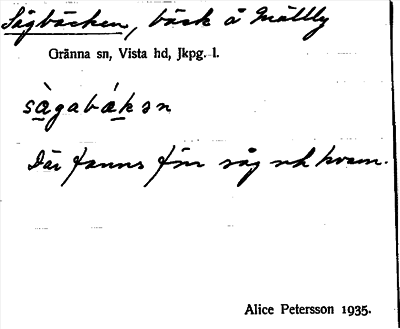 Sågbäcken, bäck å Mällby
Gränna sn, Vista hd, Jkpg. l.
sàgabákən
Där fanns förr såg och kvarn.
Alice Petersson 1935.